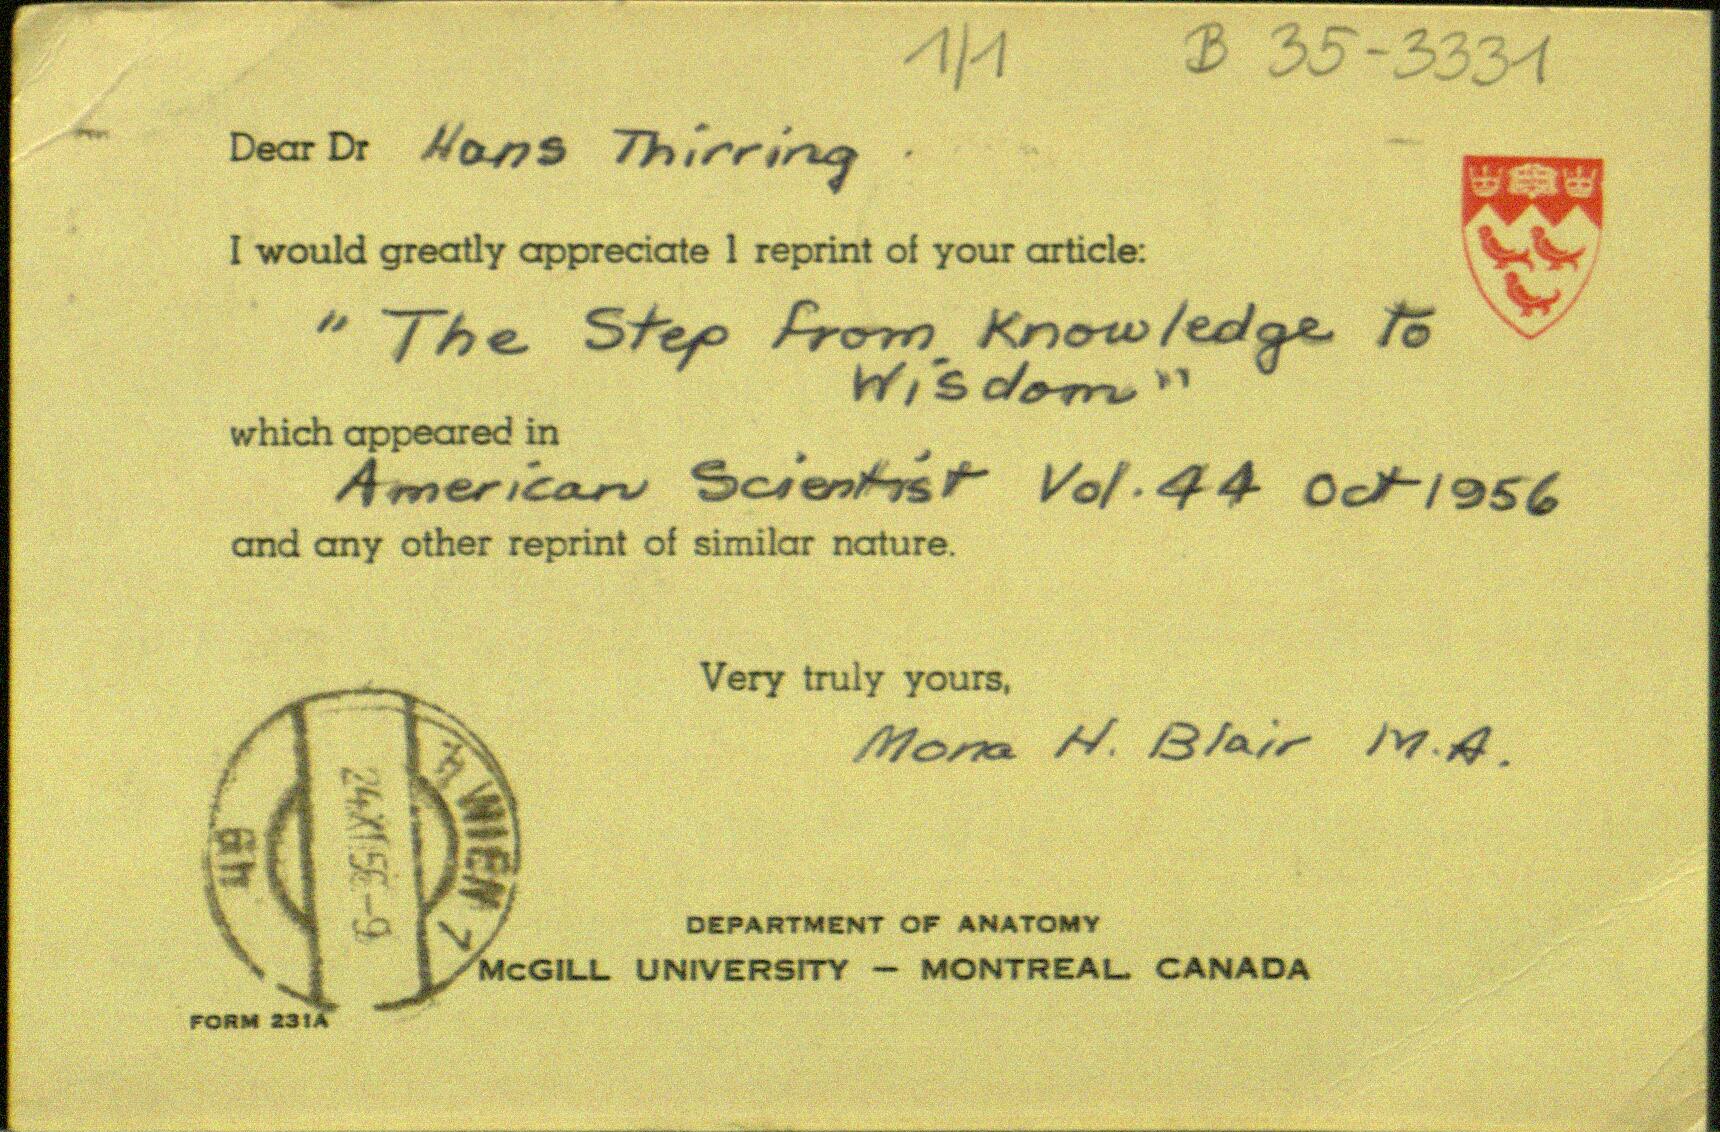 1/1 B 35-3331
Dear Dr Hans Thirring
I would greatly appreciate 1 reprint of your article:
" The Step from Knowledge to
Wisdom"
which appeared in
American Scientist Vol. 44 Oct 1956
and any other reprint of similar nature.
Very truly yours,
Mona H. Blair M.A.
WIEN 7
24.XI.56-9
DEPARTMENT OF ANATOMY
McGILL UNIVERSITY — MONTREAL. CANADA
FORM 231A